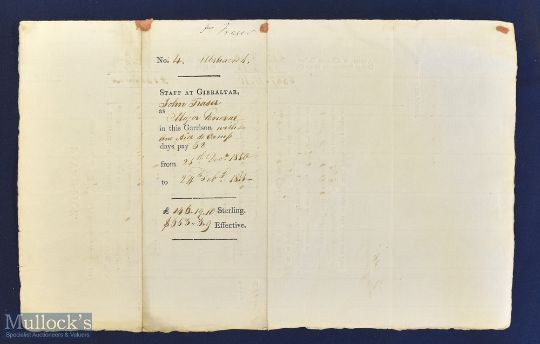 No. 4. Abstract 4.
STAFF AT GIBRALTAR,
John Fraser
as
Major General
in this Garrison with
one Aid de Camp
days pay 62
from 25th Decr.
to 24th Feb.
£ 146-19.10 Sterling.
Effective.
Mullock's
Specialist Auctioneers & Valuers